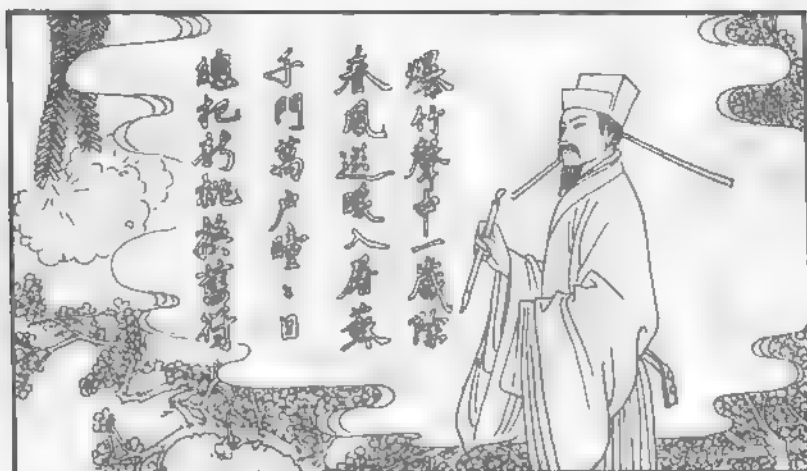 爆竹聲中一歲除
春風送暖入屠蘇
千門萬户曈々日
總把新桃換舊符